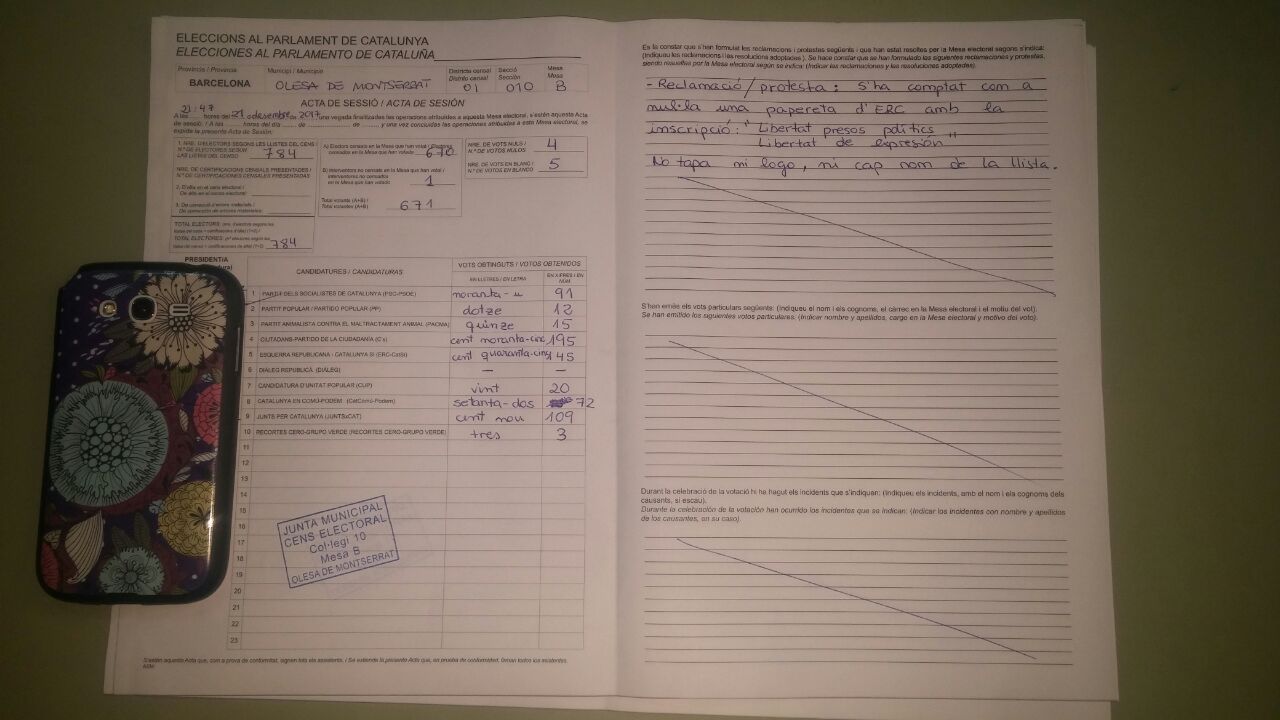 ELECCIONS AL PARLAMENT DE CATALUNYA
ELECCIONES AL PARLAMENTO DE CATALUÑA
Província / Provincia Municipi / Municipio Districte censal Secció Mesa
Distrito censal Sección Mesa
BARCELONA OLESA DE MONTSERRAT 01 010 B
ACTA DE SESSIÓ / ACTA DE SESIÓN
21:47
A les hores del 21 desembre de 2017, una vegada finalitzades les operacions atribuïdes a aquesta Mesa electoral, s'estén aquesta Acta
de sessió. / A las horas del día de de y una vez concluidas las operaciones atribuidas a esta Mesa electoral, se
expide la presente Acta de Sesión:
1. NRE. D'ELECTORS SEGONS LES LLISTES DEL CENS /
N.º DE ELECTORES SEGÚN
LAS LISTAS DEL CENSO 784
NRE. DE CERTIFICACIONS CENSALS PRESENTADES /
N.º DE CERTIFICACIONES CENSALES PRESENTADAS
2. D'alta en el cens electoral /
De alta en el censo electoral
3. De correcció d'errors materials /
De corrección de errores materiales
TOTAL ELECTORS:
TOTAL ELECTORES: 784
A) Electors censats en la Mesa que han votat / Electores
censados en la Mesa que han votado 670
B) Interventors no censats en la Mesa que han votat /
Interventores no censados
en la Mesa que han votado 1
Total votants (A+B) /
Total votantes (A+B) 671
NRE. DE VOTS NULS /
N.º DE VOTOS NULOS 4
NRE. DE VOTS EN BLANC /
N.º DE VOTOS EN BLANCO 5
PRESIDENT/A
CANDIDATURES / CANDIDATURAS VOTS OBTINGUTS / VOTOS OBTENIDOS
EN LLETRES / EN LETRA EN XIFRES / EN NÚM.
1 PARTIT DELS SOCIALISTES DE CATALUNYA (PSC-PSOE) noranta-u 91
2 PARTIT POPULAR / PARTIDO POPULAR (PP) dotze 12
3 PARTIT ANIMALISTA CONTRA EL MALTRACTAMENT ANIMAL (PACMA) quinze 15
4 CIUTADANS-PARTIDO DE LA CIUDADANÍA (C's) cent noranta-cinc 195
5 ESQUERRA REPUBLICANA - CATALUNYA SÍ (ERC-CatSí) cent quaranta-cinc 145
6 DIÀLEG REPUBLICÀ (DIÀLEG) — —
7 CANDIDATURA D'UNITAT POPULAR (CUP) vint 20
8 CATALUNYA EN COMÚ-PODEM (CatComú-Podem) setanta-dos 72
9 JUNTS PER CATALUNYA (JUNTSxCAT) cent nou 109
10 RECORTES CERO-GRUPO VERDE (RECORTES CERO-GRUPO VERDE) tres 3
11
12
13
14
15
16
17
18
19
20
21
22
23
JUNTA MUNICIPAL
CENS ELECTORAL
Col·legi 10
Mesa B
OLESA DE MONTSERRAT
S'estén aquesta Acta que, com a prova de conformitat, signen tots els assistents. / Se extiende la presente Acta que, en prueba de conformidad, firman todos los asistentes.
Es fa constar que s'han formulat les reclamacions i protestes següents i que han estat resoltes per la Mesa electoral segons s'indica:
(Indiqueu les reclamacions i les resolucions adoptades). Se hace constar que se han formulado las siguientes reclamaciones y protestas,
siendo resueltas por la Mesa electoral según se indica: (Indicar las reclamaciones y las resoluciones adoptadas).
- Reclamació / protesta: s'ha comptat com a
nul·la una papereta d'ERC amb la
inscripció: "Libertat presos polítics
Llibertat de expresión"
No tapa ni logo, ni cap nom de la llista.
S'han emès els vots particulars següents: (Indiqueu el nom i els cognoms, el càrrec en la Mesa electoral i el motiu del vot).
Se han emitido los siguientes votos particulares: (Indicar nombre y apellidos, cargo en la Mesa electoral y motivo del voto).
Durant la celebració de la votació hi ha hagut els incidents que s'indiquen: (Indiqueu els incidents, amb el nom i els cognoms dels
causants, si escau).
Durante la celebración de la votación han ocurrido los incidentes que se indican: (Indicar los incidentes con nombre y apellidos
de los causantes, en su caso).